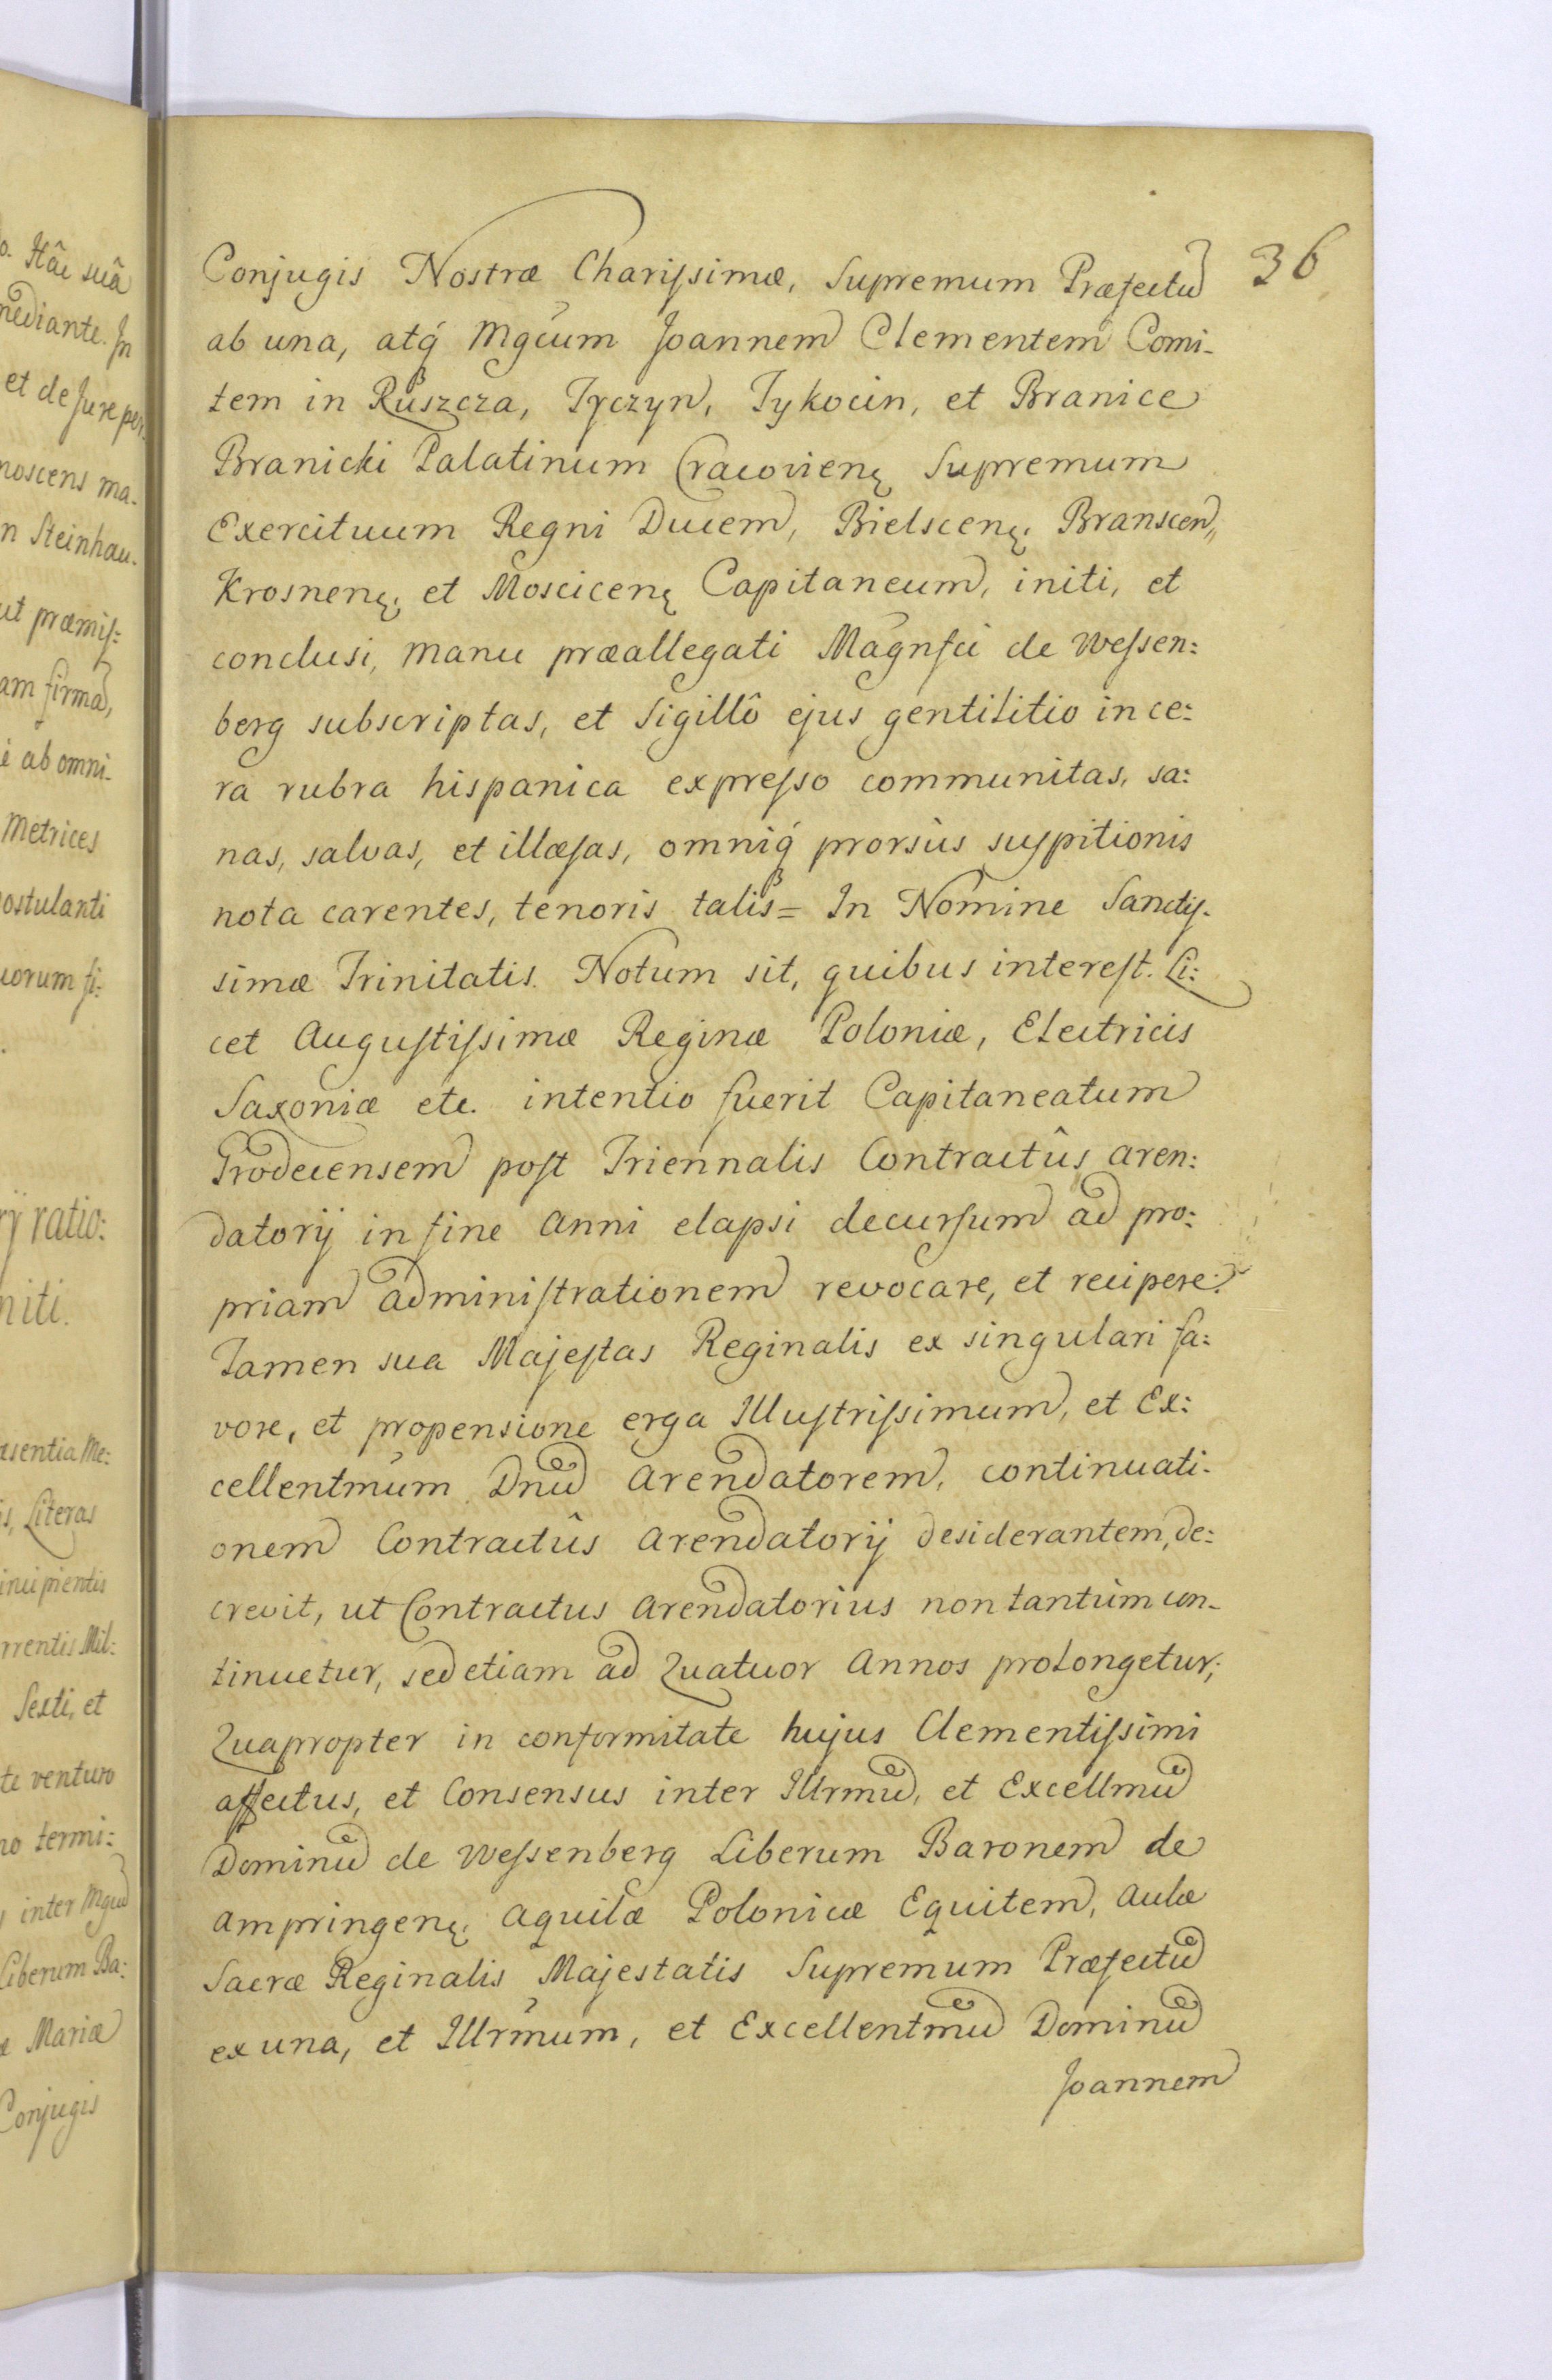 o. Hâc suâ
mediante. In
et de Jure per
noscens ma-
n Steinhau-
ut præmis:
am firmā,
è ab omni-
Metrices
ostulanti
uorum fi:
rÿ ratio:
niti.
æsentia Me:
is, Literas
incipientis
rrentis Mil:
Sexti, et
te venturo
no termi:
inter Mgcū
Liberum Ba:
æ Mariæ
Conjugis
36
Conjugis Nostræ Charissimæ, Supremum Præfectū
ab una, atq́ Mgcum Joannem Clementem Comi-
tem in Ruszcza, Tyczyn, Tykocin, et Branice
Branicki Palatinum Cracovienę Supremum
Exercituum Regni Ducem, Bielscenę, Branscen,
Krosnenę, et Moscicenę Capitaneum, initi, et
conclusi, manu præallegati Magnfci de Wessen:
berg subscriptas, et Sigillô ejus gentilitio in ce:
ra rubra hispanica expresso communitas, sa:
nas, salvas, et illæsas, omniq́ prorsùs suspitionis
nota carentes, tenoris talis= In Nomine Sanctis-
simæ Trinitatis. Notum sit, quibus interest. Li:
cet Augustissimæ Reginæ Poloniæ, Electricis
Saxoniæ etc. intentio fuerit Capitaneatum
Grodecensem post Triennalis Contractûs aren:
datorij in fine Anni elapsi decursum ad pro:
priam administrationem revocare, et recipere:
Tamen sua Majestas Reginalis ex singulari fa:
vore, et propensione erga Illustrissimum, et Ex:
cellentmum Dnū Arendatorem, continuati-
onem Contractûs Arendatorij desiderantem, de:
crevit, ut Contractus Arendatorius non tantùm con-
tinuetur, sed etiam ad Quatuor Annos prolongetur;
Quapropter in conformitate hujus Clementissimi
affectus, et Consensus inter Illrmū, et Excellmū
Dominū de Wessenberg Liberum Baronem de
Ampringenę, Aquilæ Polonicæ Equitem, Aulæ
Sacræ Reginalis Majestatis Supremum Præfectū
ex una, et Illrmum, et Excellentmū Dominū
Joannem